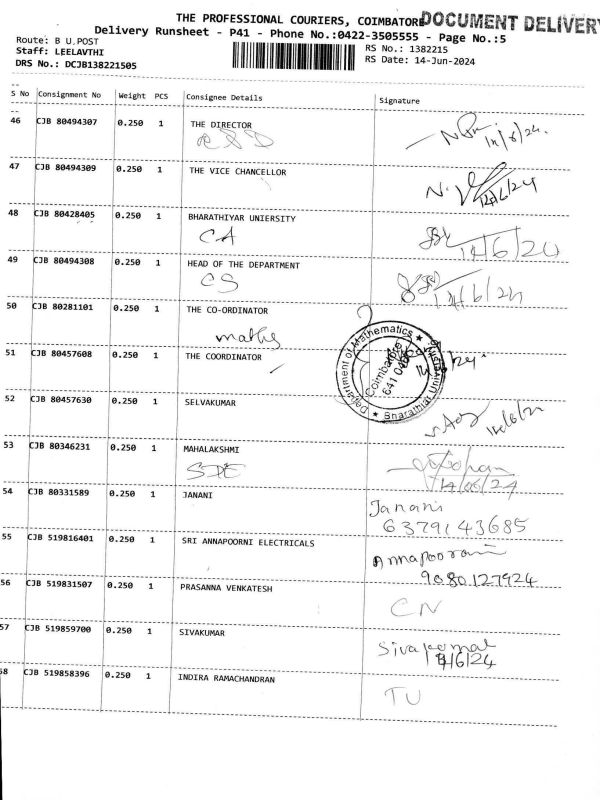 THE PROFESSIONAL COURIERS, COIMBATORE
DOCUMENT DELIVERY
Delivery Runsheet - P41 - Phone No.:0422-3505555 - Page No.:5
Route: B U POST
RS No.: 1382215
Staff: LEELAVTHI
RS Date: 14-Jun-2024
DRS No.: DCJB138221505
S No Consignment No Weight PCS Consignee Details Signature
46 CJB 80494307 0.250 1 THE DIRECTOR
R&D 14/6/24.
47 CJB 80494309 0.250 1 THE VICE CHANCELLOR
14/6/24
48 CJB 80428405 0.250 1 BHARATHIYAR UNIERSITY
CA 14/6/24
49 CJB 80494308 0.250 1 HEAD OF THE DEPARTMENT
CS 14/6/24
50 CJB 80281101 0.250 1 THE CO-ORDINATOR
maths
Department of Mathematics ★ Bharathiar University ★
Coimbatore
641 046
51 CJB 80457608 0.250 1 THE COORDINATOR
52 CJB 80457630 0.250 1 SELVAKUMAR
53 CJB 80346231 0.250 1 MAHALAKSHMI
SDE 14/06/24
54 CJB 80331589 0.250 1 JANANI
Janani
6379143685
55 CJB 519816401 0.250 1 SRI ANNAPOORNI ELECTRICALS
Annapoorani
9080127924
56 CJB 519831507 0.250 1 PRASANNA VENKATESH
CN
57 CJB 519859700 0.250 1 SIVAKUMAR
Sivakumar
14/6/24
58 CJB 519858396 0.250 1 INDIRA RAMACHANDRAN
TU